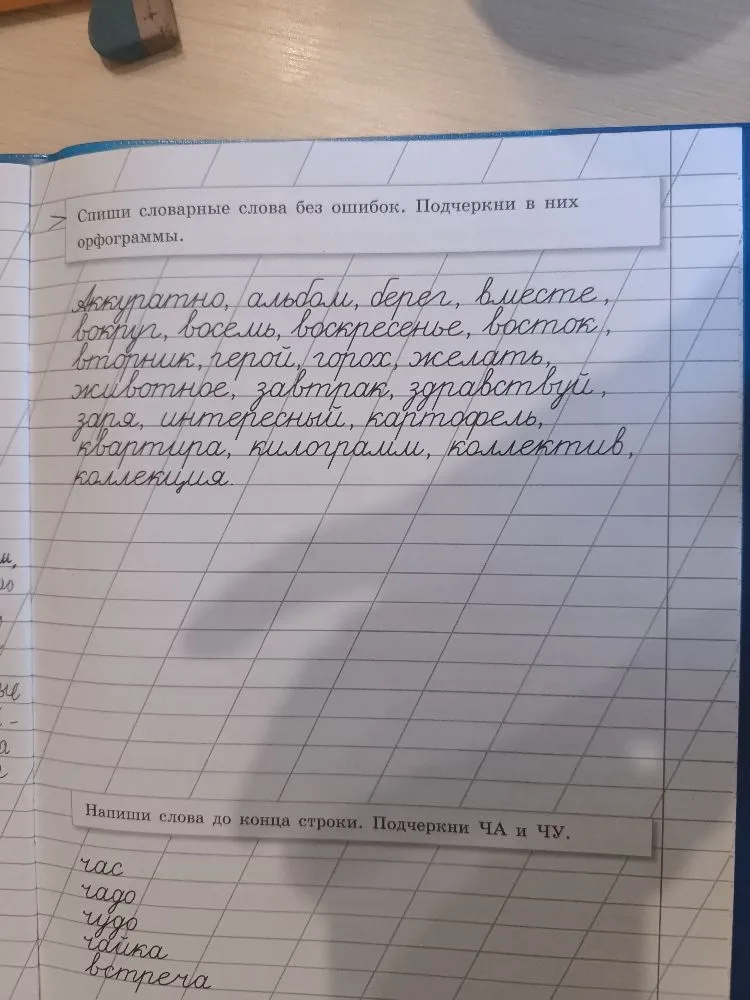 Спиши словарные слова без ошибок. Подчеркни в них
орфограммы.
Аккуратно, альбом, берег, вместе,
вокруг, восемь, воскресенье, восток,
вторник, герой, горох, желать,
животное, завтрак, здравствуй,
заря, интересный, картофель,
квартира, килограмм, коллектив,
коллекция.
Напиши слова до конца строки. Подчеркни ЧА и ЧУ.
час
чадо
чудо
чайка
встреча